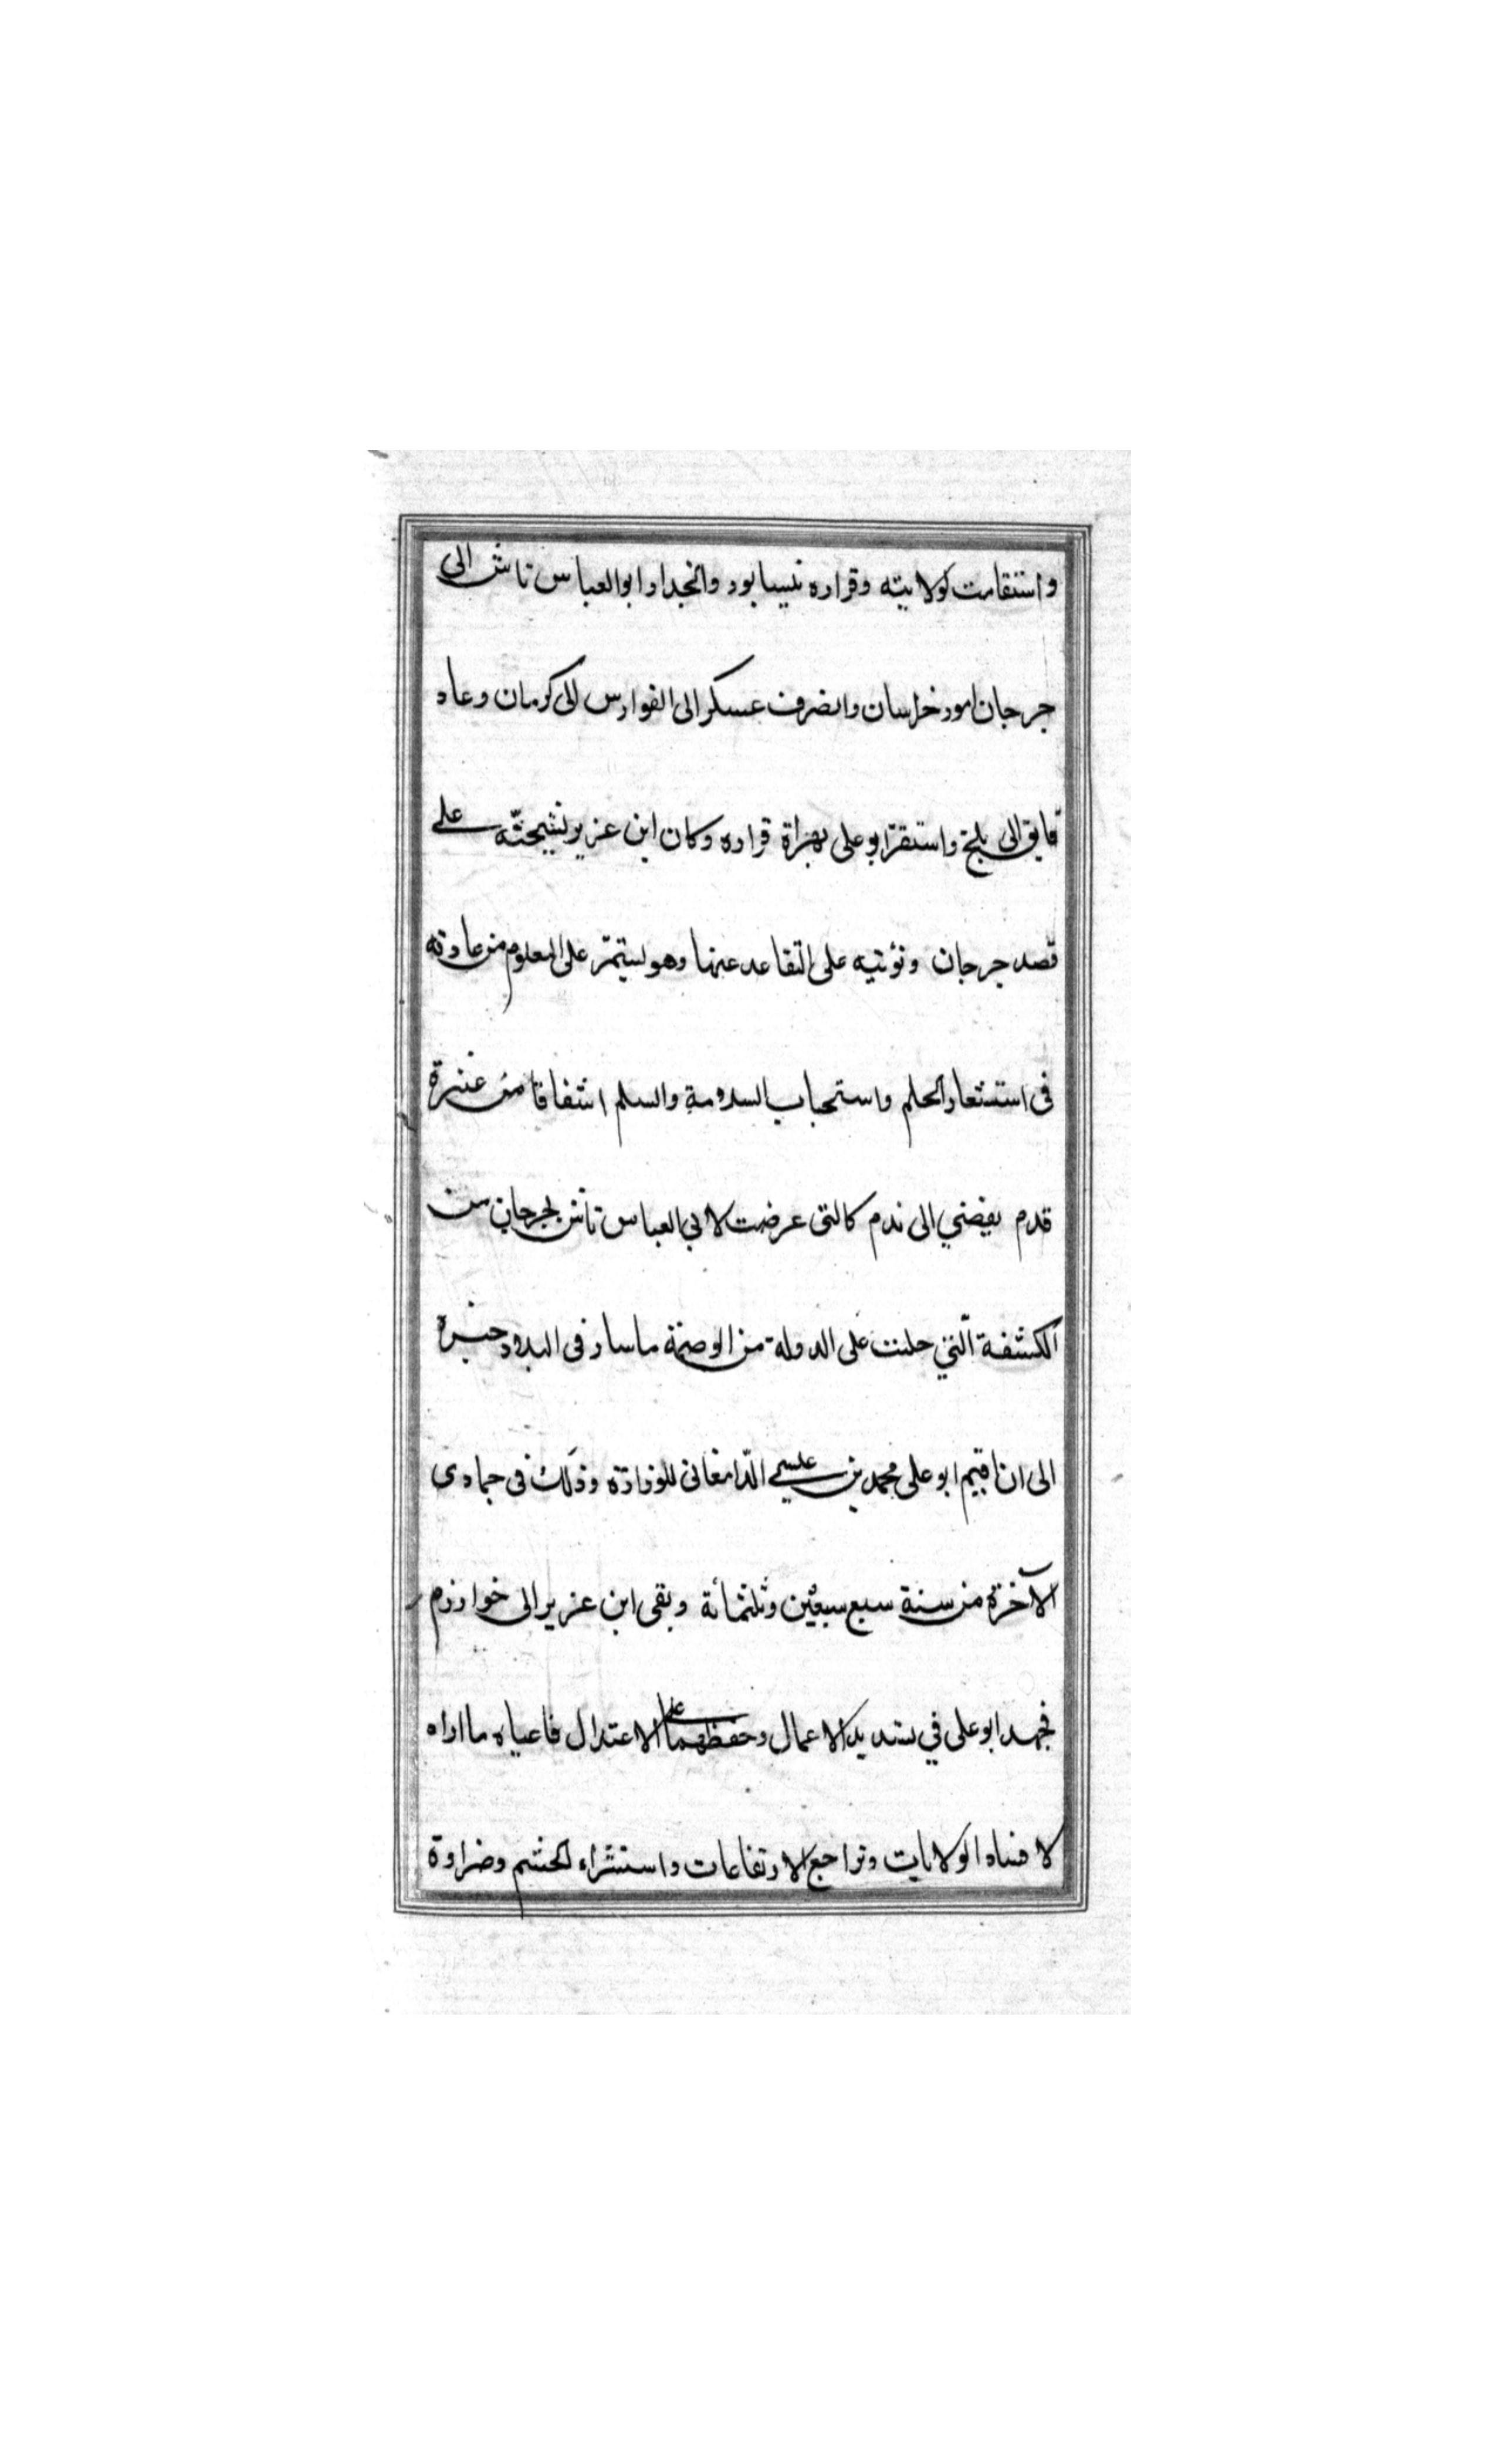 واستقامت لولايته وقراره نيسابور وانحدار ابوالعباس تاش الى
جرجان امور خراسان وانصرف عسكر الى الفوارس الى كرمان وعاد
فايق الى بلخ واستقر ابو على بهراة قراره وكان ابن عزير يحثه على
قصد جرجان وتؤنيبه على التقاعد عنها وهو يستمّر على المعلوم من عادته
فى استشعار الحلم واستحباب السلامة والسلم اشفاقا من عثرة
قدم يفضي الى ندم كالتى عرضت لابي العباس تاش بجرجان من
الكشفة الّتي جلبت على الدولة من الوصمة ما سار فى البلاد خبره
الى ان اقيم ابو على محمد بن عيسى الدّامغانى للوزارة وذلك فى جمادى
الآخرة من سنة سبع سبعين وثلثمائة وبقى ابن عزير الى خوارزم
فجهد ابو على في تسديد الاعمال وحفظهما على الاعتدال فاعياه ما اراه
لا الولايات وتراجع الارتفاعات واستشراء الحشم وضراوة